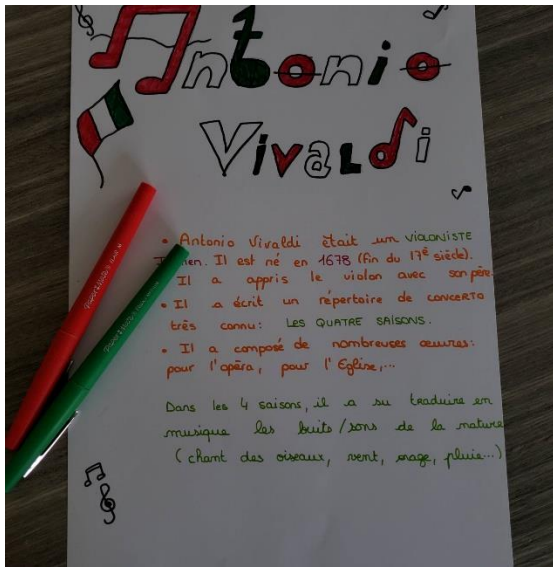 Antonio
Vivaldi
• Antonio Vivaldi était un VIOLONISTE
Il est né en 1678 (fin du 17e siècle).
Il a appris le violon avec son père.
• Il a écrit un répertoire de CONCERTO
très connu: LES QUATRE SAISONS.
• Il a composé de nombreuses œuvres:
pour l'opéra, pour l'Eglise,...
Dans les 4 saisons, il a su traduire en
musique les bruits/sons de la nature
(chant des oiseaux, vent, orage, pluie...)